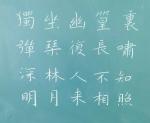 獨坐幽篁裏
彈琴復長嘯
深林人不知
明月来相照